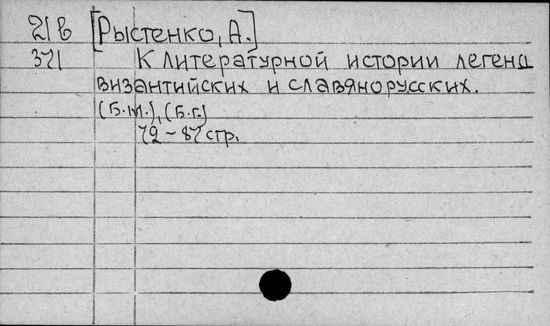 21в [Рыстенко, А.]
371 К литературной истории легенд
византийских и славянорусских.
(Б.м.), (Б.г.)
72-87 стр.